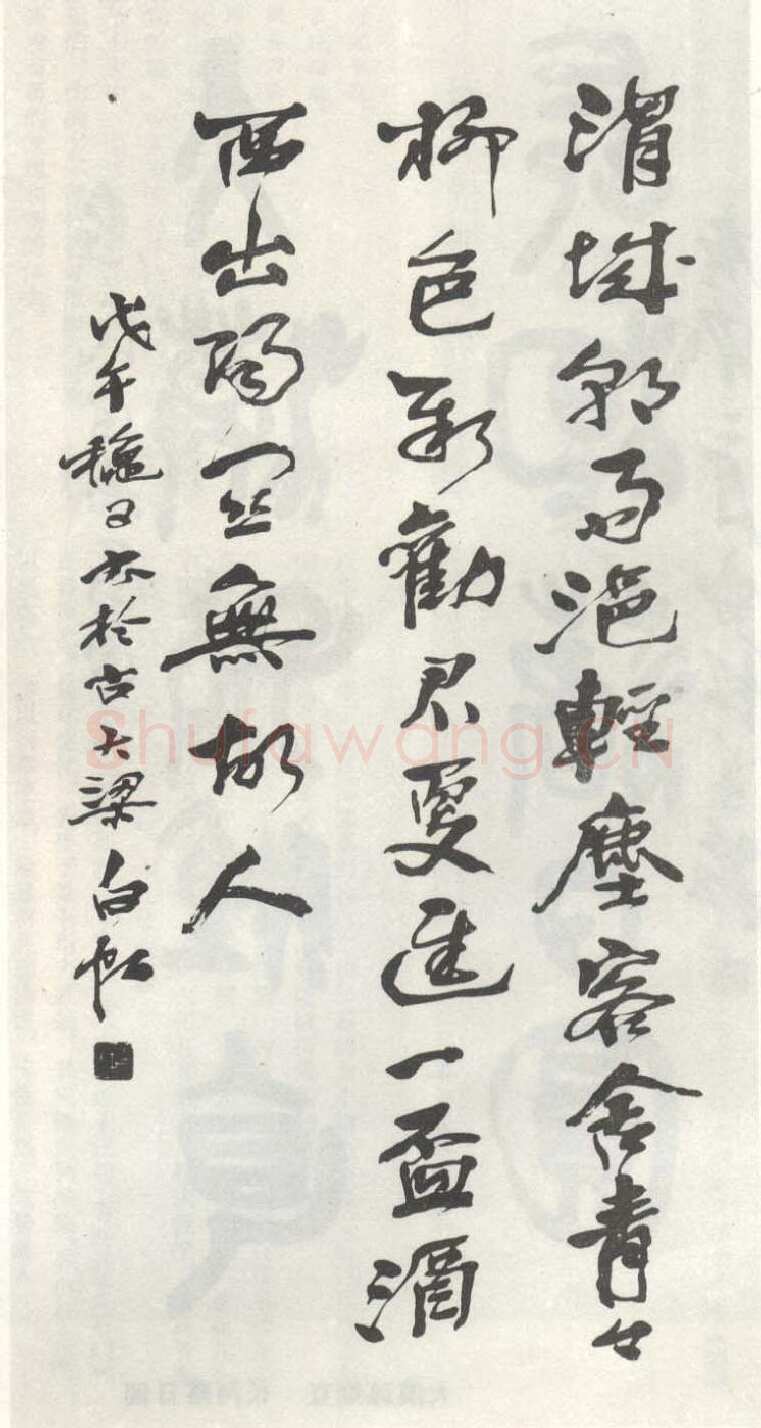 渭城朝雨浥輕塵客舍青々
柳色新勸君更進一盃酒
西出陽關無故人
戊午穐日書於古大梁白
Shufawang.CN